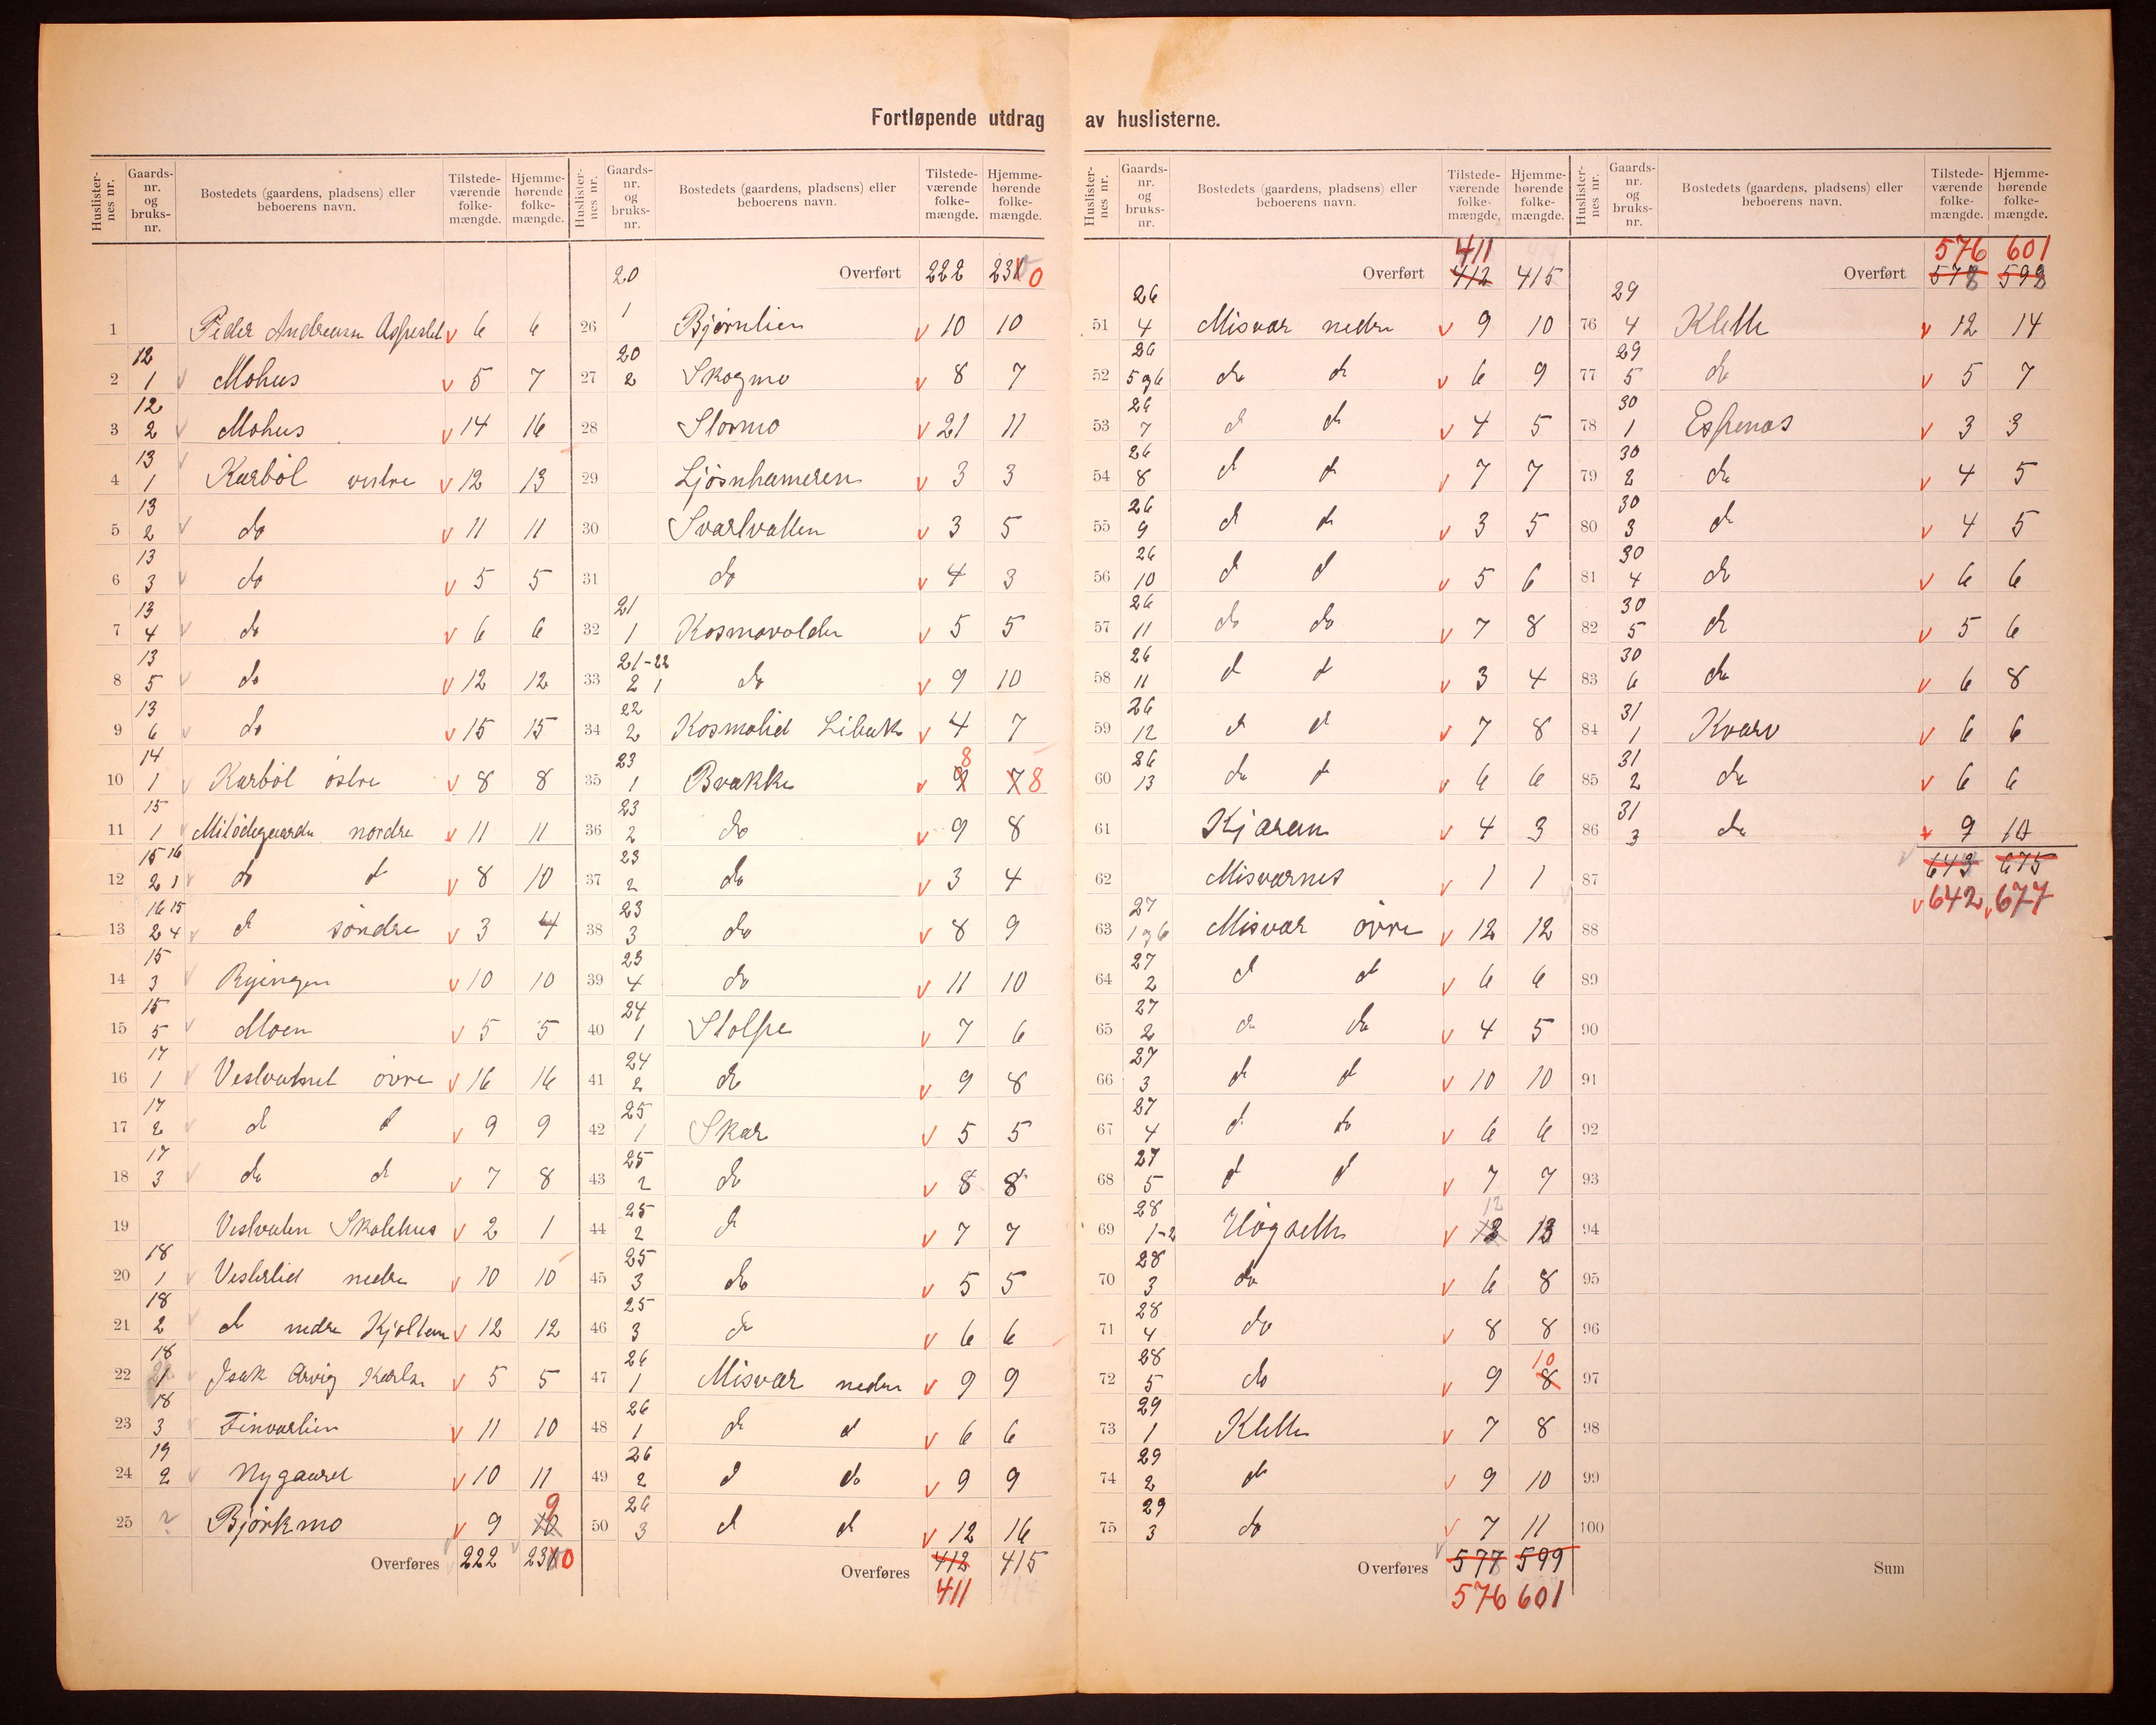 Fortløpende utdrag av huslisterne.
Huslister-nes nr. Gaards-nr. og bruks-nr. Bostedets (gaardens, pladsens) eller beboerens navn. Tilstede-værende folke-mængde. Hjemme-hørende folke-mængde.
1 Peder Andreasen v 6 6
2 12 1 Mohus v 5 7
3 12 2 Mohus v 14 16
4 13 1 Karbøl vestre v 12 13
5 13 2 do v 11 11
6 13 3 do v 5 5
7 13 4 do v 6 6
8 13 5 do v 12 12
9 13 6 do v 15 15
10 14 1 Karbøl østre v 8 8
11 15 1 Mitødegaarden nordre v 11 11
12 15 16 2 1 do d v 8 10
13 16 15 2 4 d søndre v 3 4
14 15 3 Ryingen v 10 10
15 15 5 Moen v 5 5
16 17 1 Vestvatnet øvre v 16 16
17 17 2 d d v 9 9
18 17 3 do d v 7 8
19 Vestvatn Skolehus v 2 1
20 18 1 Vesterlid nedre v 10 10
21 18 2 d nedre Kjoltem v 12 12
22 18 Isak Arvig Karlsen v 5 5
23 18 3 Finvarlien v 11 10
24 19 2 Nygaard v 10 11
25 Bjørkmo v 9 10 9
Overføres 222 230
Huslister-nes nr. Gaards-nr. og bruks-nr. Bostedets (gaardens, pladsens) eller beboerens navn. Tilstede-værende folke-mængde. Hjemme-hørende folke-mængde.
Overført 222 230
26 20 1 Bjørnlien v 10 10
27 20 2 Skogmo v 8 7
28 Stormo v 21 11
29 Ljøsnhameren v 3 3
30 Svartvatten v 3 5
31 do v 4 3
32 21 1 Kosmovolden v 5 5
33 21-22 2 1 do v 9 10
34 22 2 Kosmolid Libakk v 4 7
35 23 1 Brakke v 9 8 7 8
36 23 2 do v 9 8
37 23 2 do v 3 4
38 23 3 do v 8 9
39 23 4 do v 11 10
40 24 1 Stolpe v 7 6
41 24 2 do v 9 8
42 25 1 Skar v 5 5
43 25 2 do v 8 8
44 25 2 d v 7 7
45 25 3 do v 5 5
46 25 3 d v 6 6
47 26 1 Misvær nedre v 9 9
48 26 1 d d v 6 6
49 26 2 d do v 9 9
50 26 3 d d v 12 16
Overføres 412 415
411
Huslister-nes nr. Gaards-nr. og bruks-nr. Bostedets (gaardens, pladsens) eller beboerens navn. Tilstede-værende folke-mængde. Hjemme-hørende folke-mængde.
411
Overført 412 415
51 26 4 Misvær nedre v 9 10
52 26 5 og 6 do d v 6 9
53 26 7 d d v 4 5
54 26 8 d d v 7 7
55 26 9 d d v 3 5
56 26 10 d d v 5 6
57 26 11 do do v 7 8
58 26 11 d d v 3 4
59 26 12 d d v 7 8
60 26 13 do d v 6 6
61 Kjæran v 4 3
62 Misværnes v 1 1
63 27 1 og 6 Misvær øvre v 12 12
64 27 2 d d v 6 6
65 27 2 d do v 4 5
66 27 3 d d v 10 10
67 27 4 d do v 6 6
68 27 5 d d v 7 7
69 28 1-2 Høgsette v 12 13 13
70 28 3 do v 6 8
71 28 4 do v 8 8
72 28 5 do v 9 8 10
73 29 1 Klette v 7 8
74 29 2 do v 9 10
75 29 3 do v 7 11
Overføres 577 599
576 601
Huslister-nes nr. Gaards-nr. og bruks-nr. Bostedets (gaardens, pladsens) eller beboerens navn. Tilstede-værende folke-mængde. Hjemme-hørende folke-mængde.
576 601
Overført 578 599
76 29 4 Klette v 12 14
77 29 5 do v 5 7
78 30 1 Espenæs v 3 3
79 30 2 do v 4 5
80 30 3 d v 4 5
81 30 4 do v 6 6
82 30 5 d v 5 6
83 30 6 do v 6 8
84 31 1 Kvarv v 6 6
85 31 2 do v 6 6
86 31 3 do v 9 10
87 643 675
v 642 v 677
88
89
90
91
92
93
94
95
96
97
98
99
100
Sum